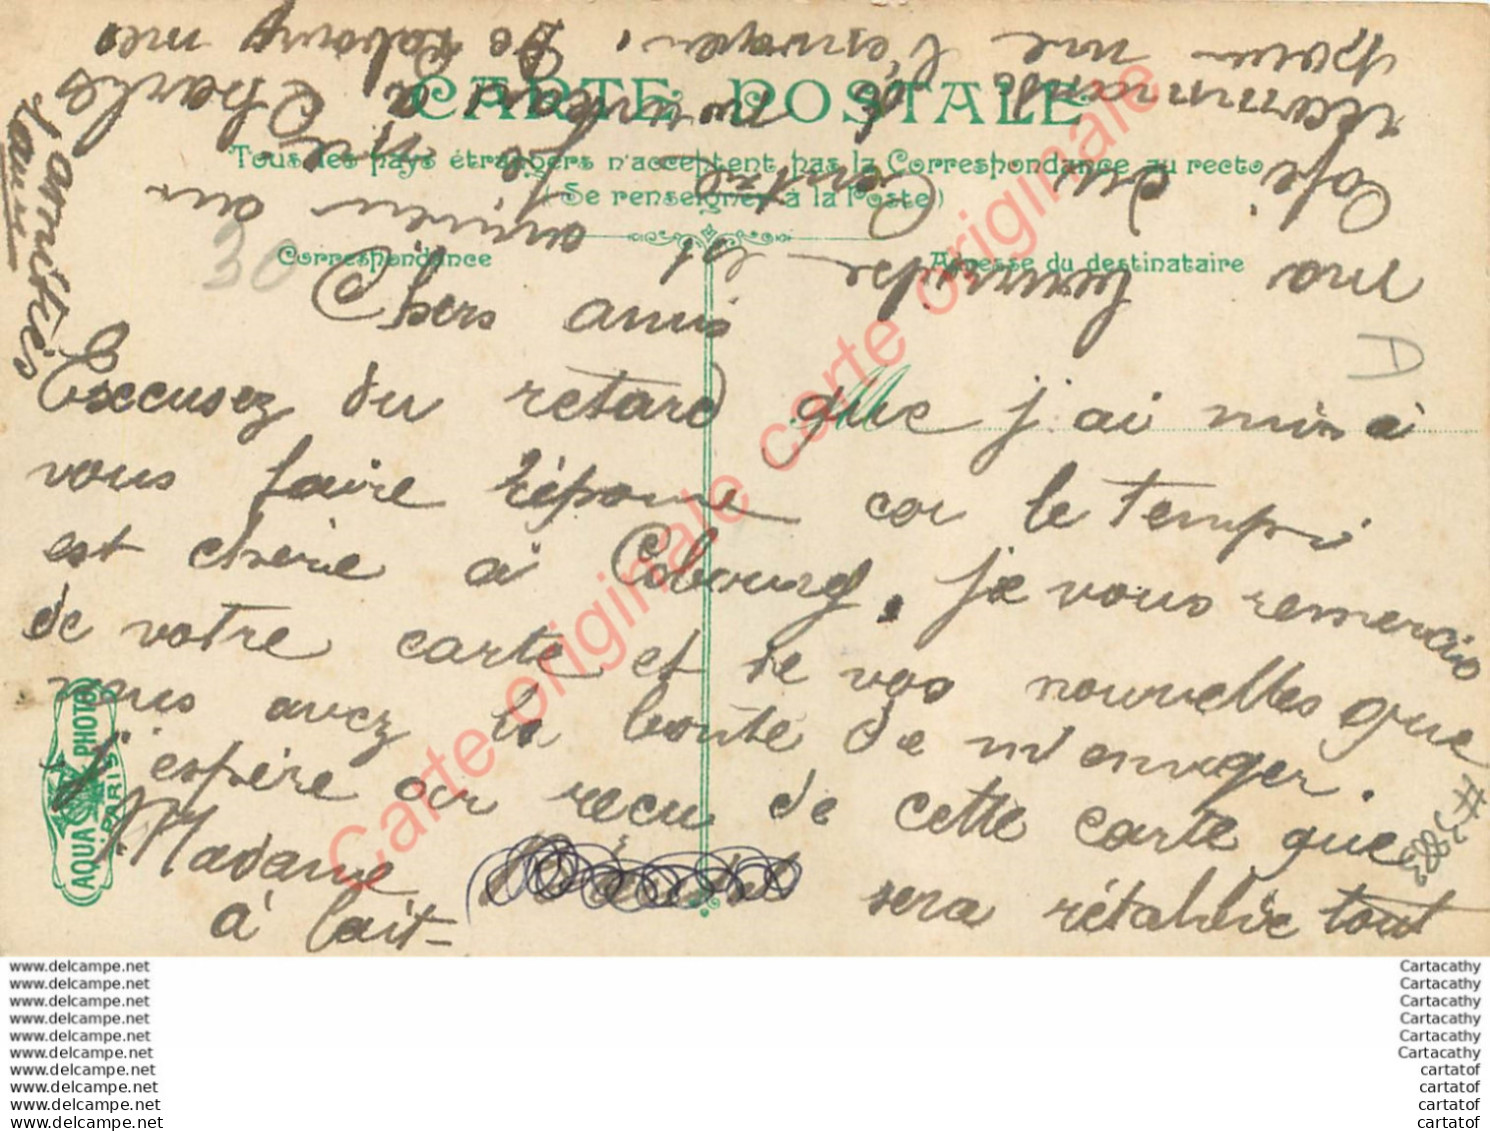 CARTE POSTALE
Tous les pays étrangers n'acceptent pas la Correspondance au recto
(Se renseigner à la Poste)
Correspondance
Adresse du destinataire
30
D
Chers amis
Excusez du retard que j'ai mis à
vous faire réponse car le temps
est chère à Cobourg. je vous remercie
de votre carte et de vos nouvelles que
vous avez la bonté de m'envoyer.
J'espère au reçu de cette carte que
Madame sera rétablie tout
à fait
ma est arrivée au
Café du Centre
recommande de nouveau à Charles
pour me l'envoyer. De Cobourg mes
amitiés
AQUA PHOTO
PARIS
Carte originale carte originale carte originale
www.delcampe.net
www.delcampe.net
www.delcampe.net
www.delcampe.net
www.delcampe.net
www.delcampe.net
www.delcampe.net
www.delcampe.net
www.delcampe.net
www.delcampe.net
Cartacathy
Cartacathy
Cartacathy
Cartacathy
Cartacathy
Cartacathy
cartatof
cartatof
cartatof
cartatof